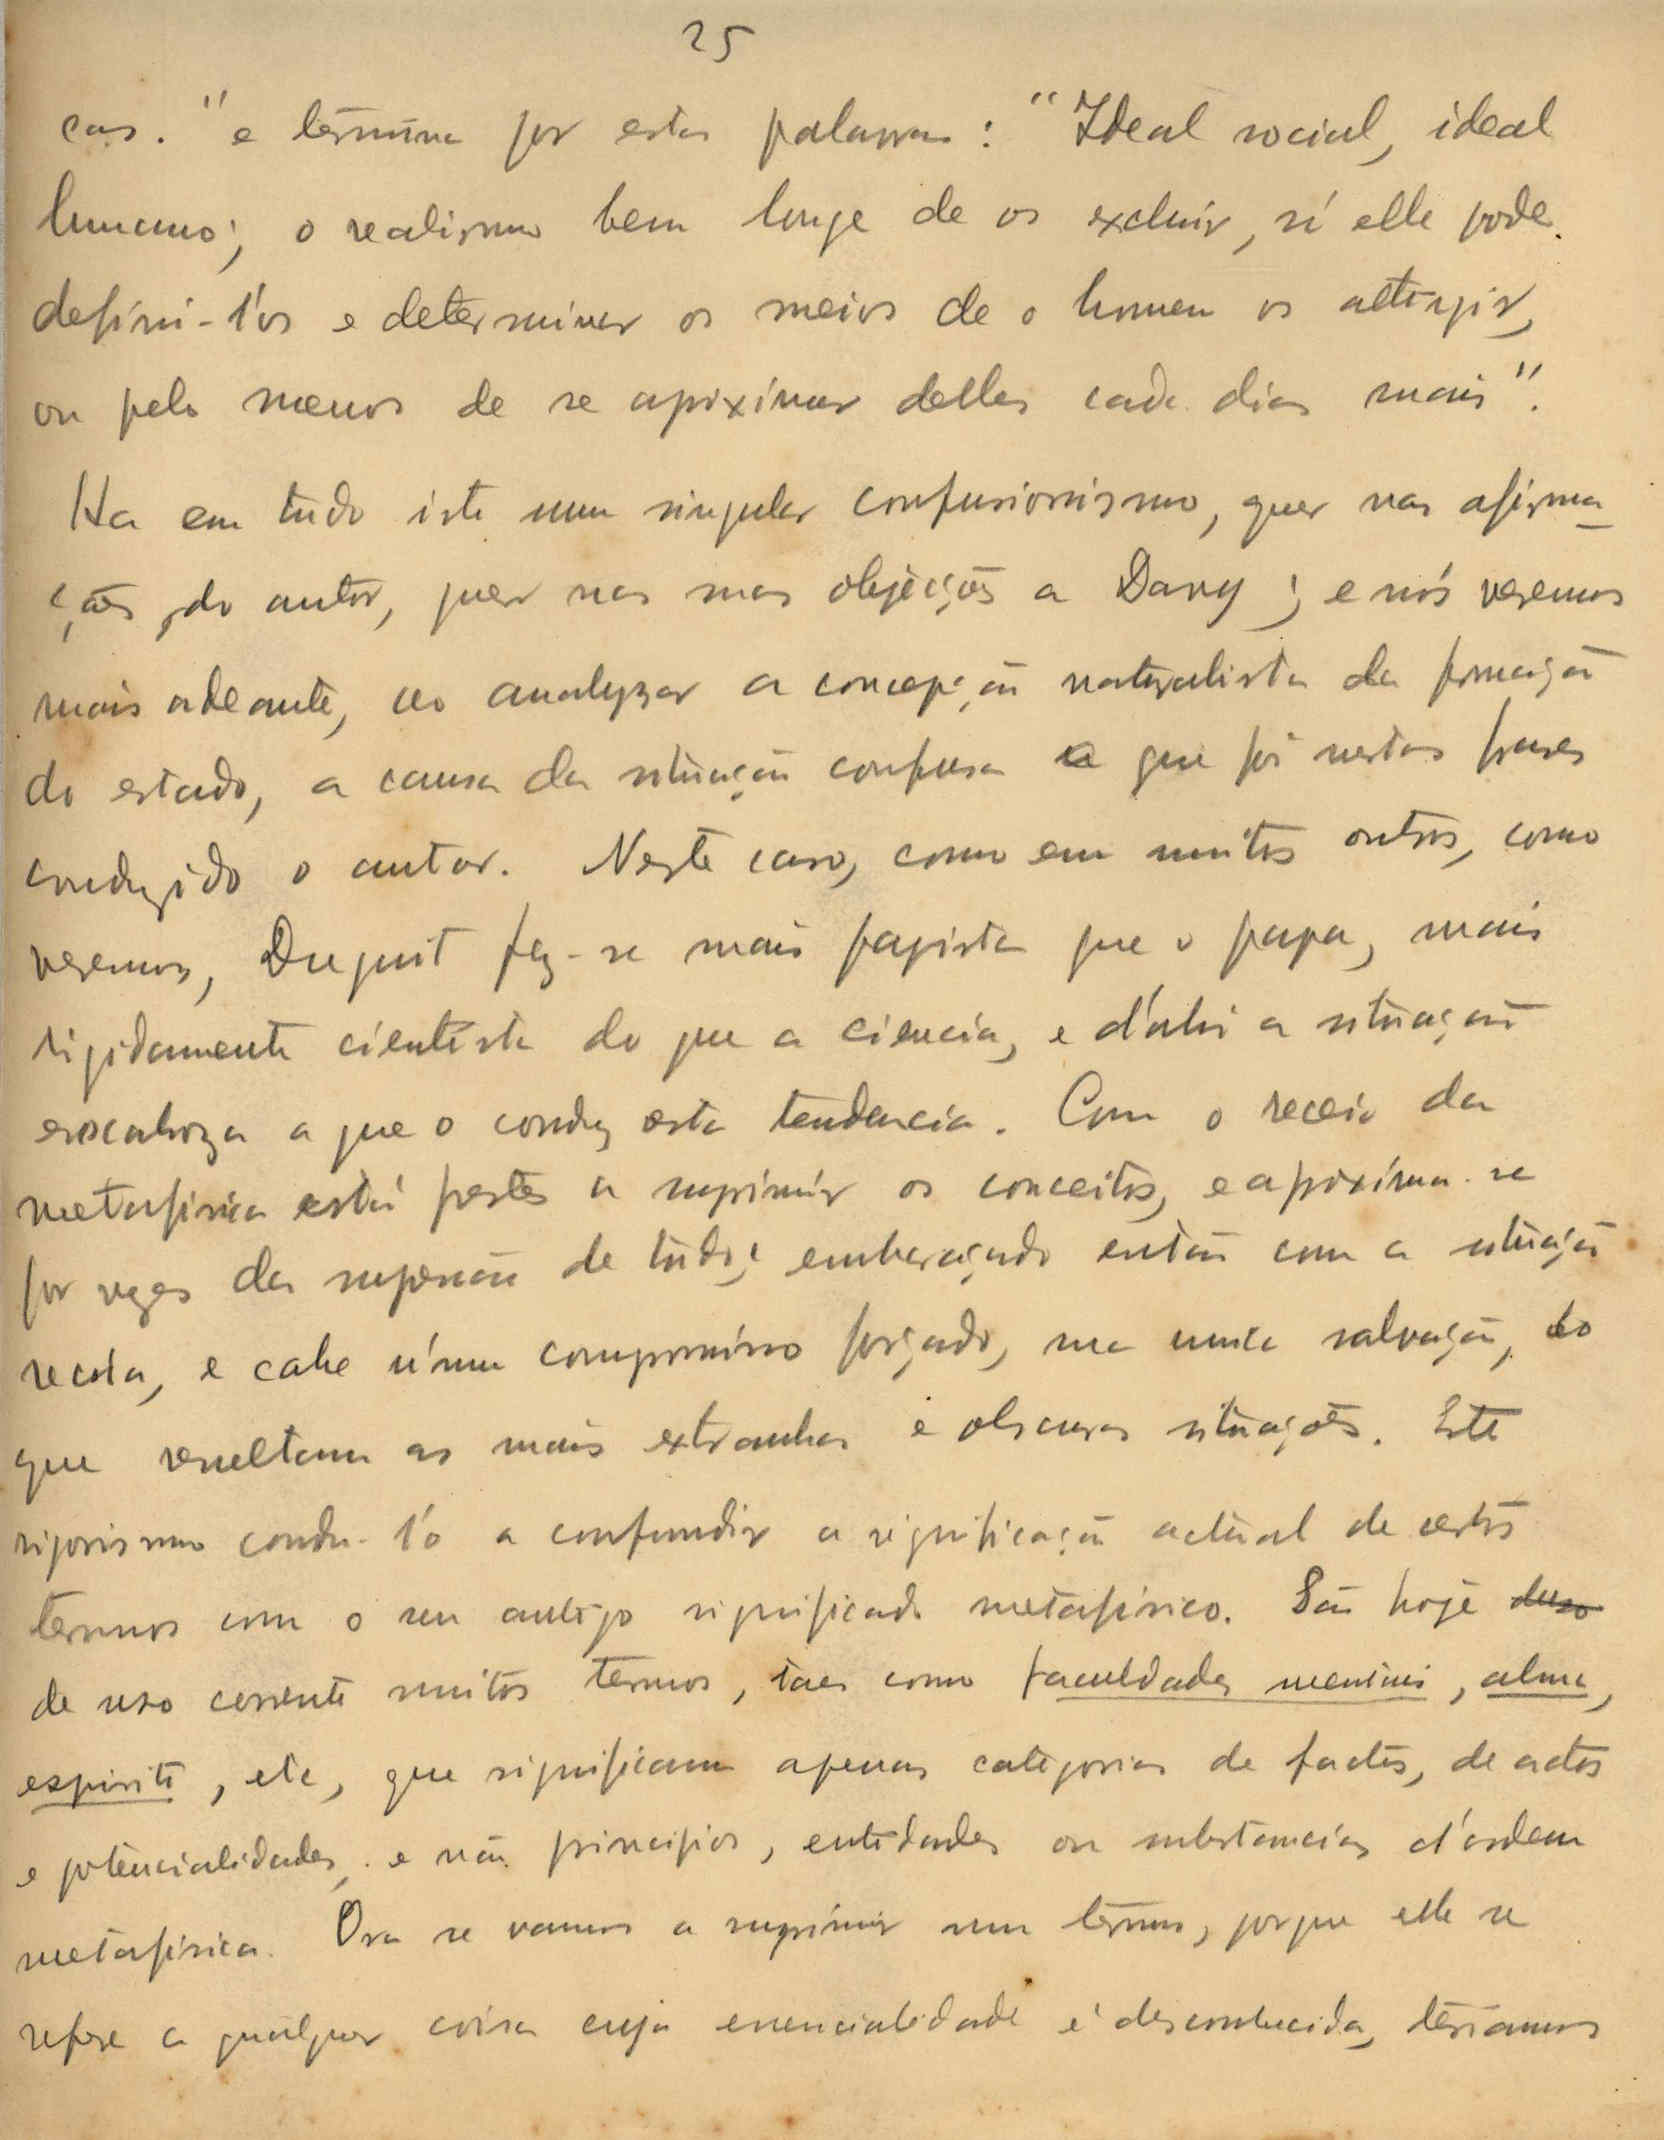 25
cas." e termina por estas palavras: "Ideal social, ideal
humano; o realismo bem longe de os excluir, si elle pode
defini-l'os e determinar os meios de o homem os attingir,
ou pelo menos de se aproximar delles cada dia mais".
Ha em tudo isto um singular confusionismo, quer nas afirma-
ções do autor, quer nas suas objecções a Davy; e nós veremos
mais adeante, ao analyzar a concepção naturalista da formação
do estado, a causa da situação confusa a que foi nestas frases
conduzido o autor. Neste caso, como em muitos outros, como
veremos, Duguit fez-se mais papista que o papa, mais
rigidamente cientista do que a ciencia, e d'ahi a situação
escabroza a que o conduz esta tendencia. Com o receio da
metafisica está prestes a suprimir os conceitos, e aproxima-se
por vezes da supressão de tudo; embaraçado então com a situação
recúa, e cahe n'um compromisso forçado, sua unica salvação, do
que resultam as mais extranhas e obscuras situações. Este
rigorismo condu-l'o a confundir a significação actual de certos
termos com o seu antigo significado metafisico. São hoje
de uso corrente muitos termos, taes como faculdades mentais, alma,
espirito, etc, que significam apenas categorias de factos, de actos
e potencialidades, e não principios, entidades ou substancias d'ordem
metafisica. Ora se vamos a suprimir um termo, porque elle se
refere a qualquer coisa cuja essencialidade é desconhecida, teriamos